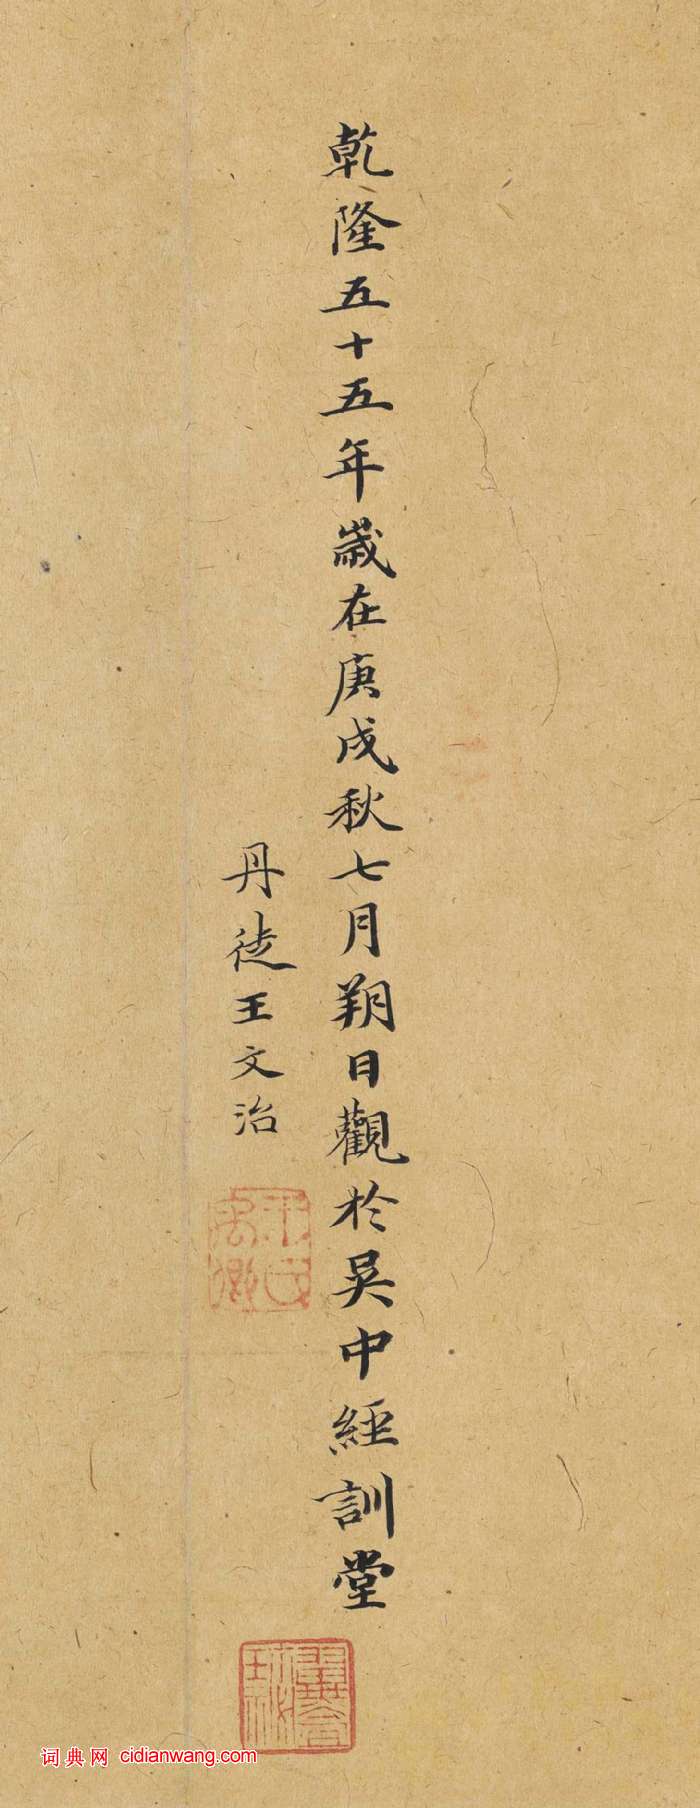 乾隆五十五年嵗在庚戌秋七月朔日觀於吳中經訓堂
丹徒王文治
王氏禹卿
词典网 cidianwang.com